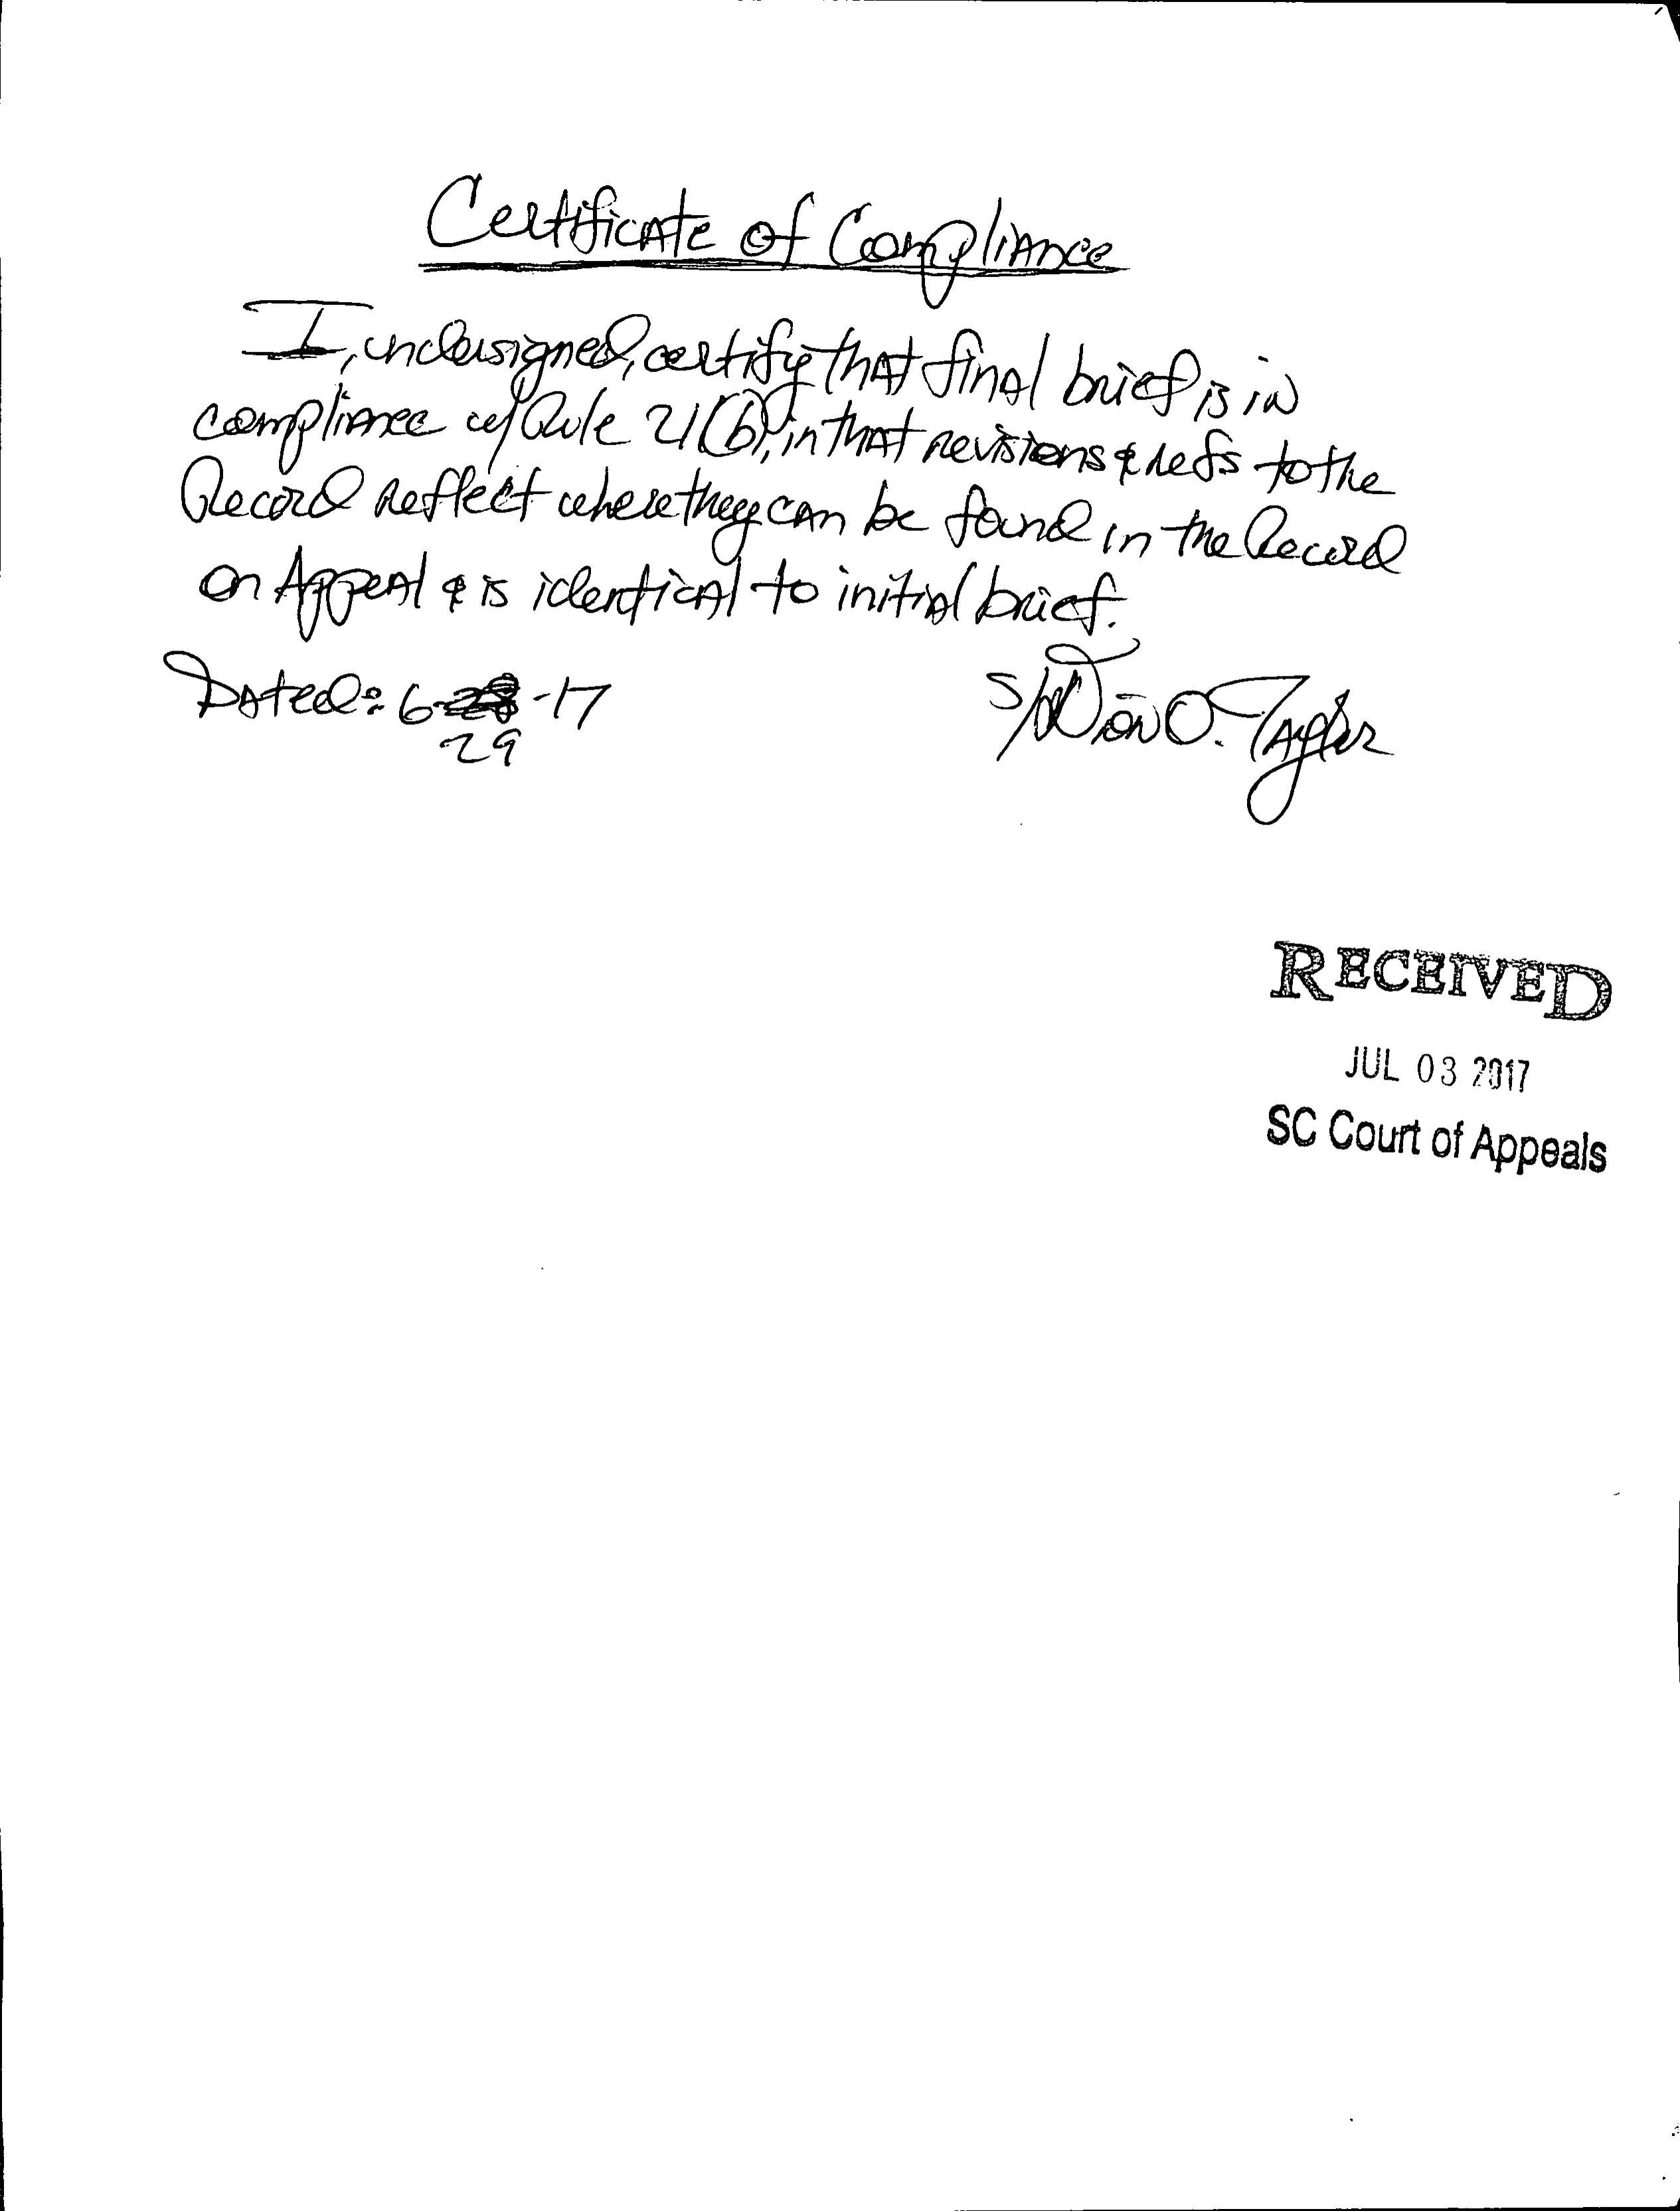 Certificate of Compliance
I, undersigned, certify that final brief is in
compliance w/ Rule 21(b), in that revisions & refs to the
Record reflect where they can be found in the Record
on Appeal & is identical to initial brief.
Dated: 6- -17
29
s/ O. Taylor
RECEIVED
JUL 03 2017
SC Court of Appeals